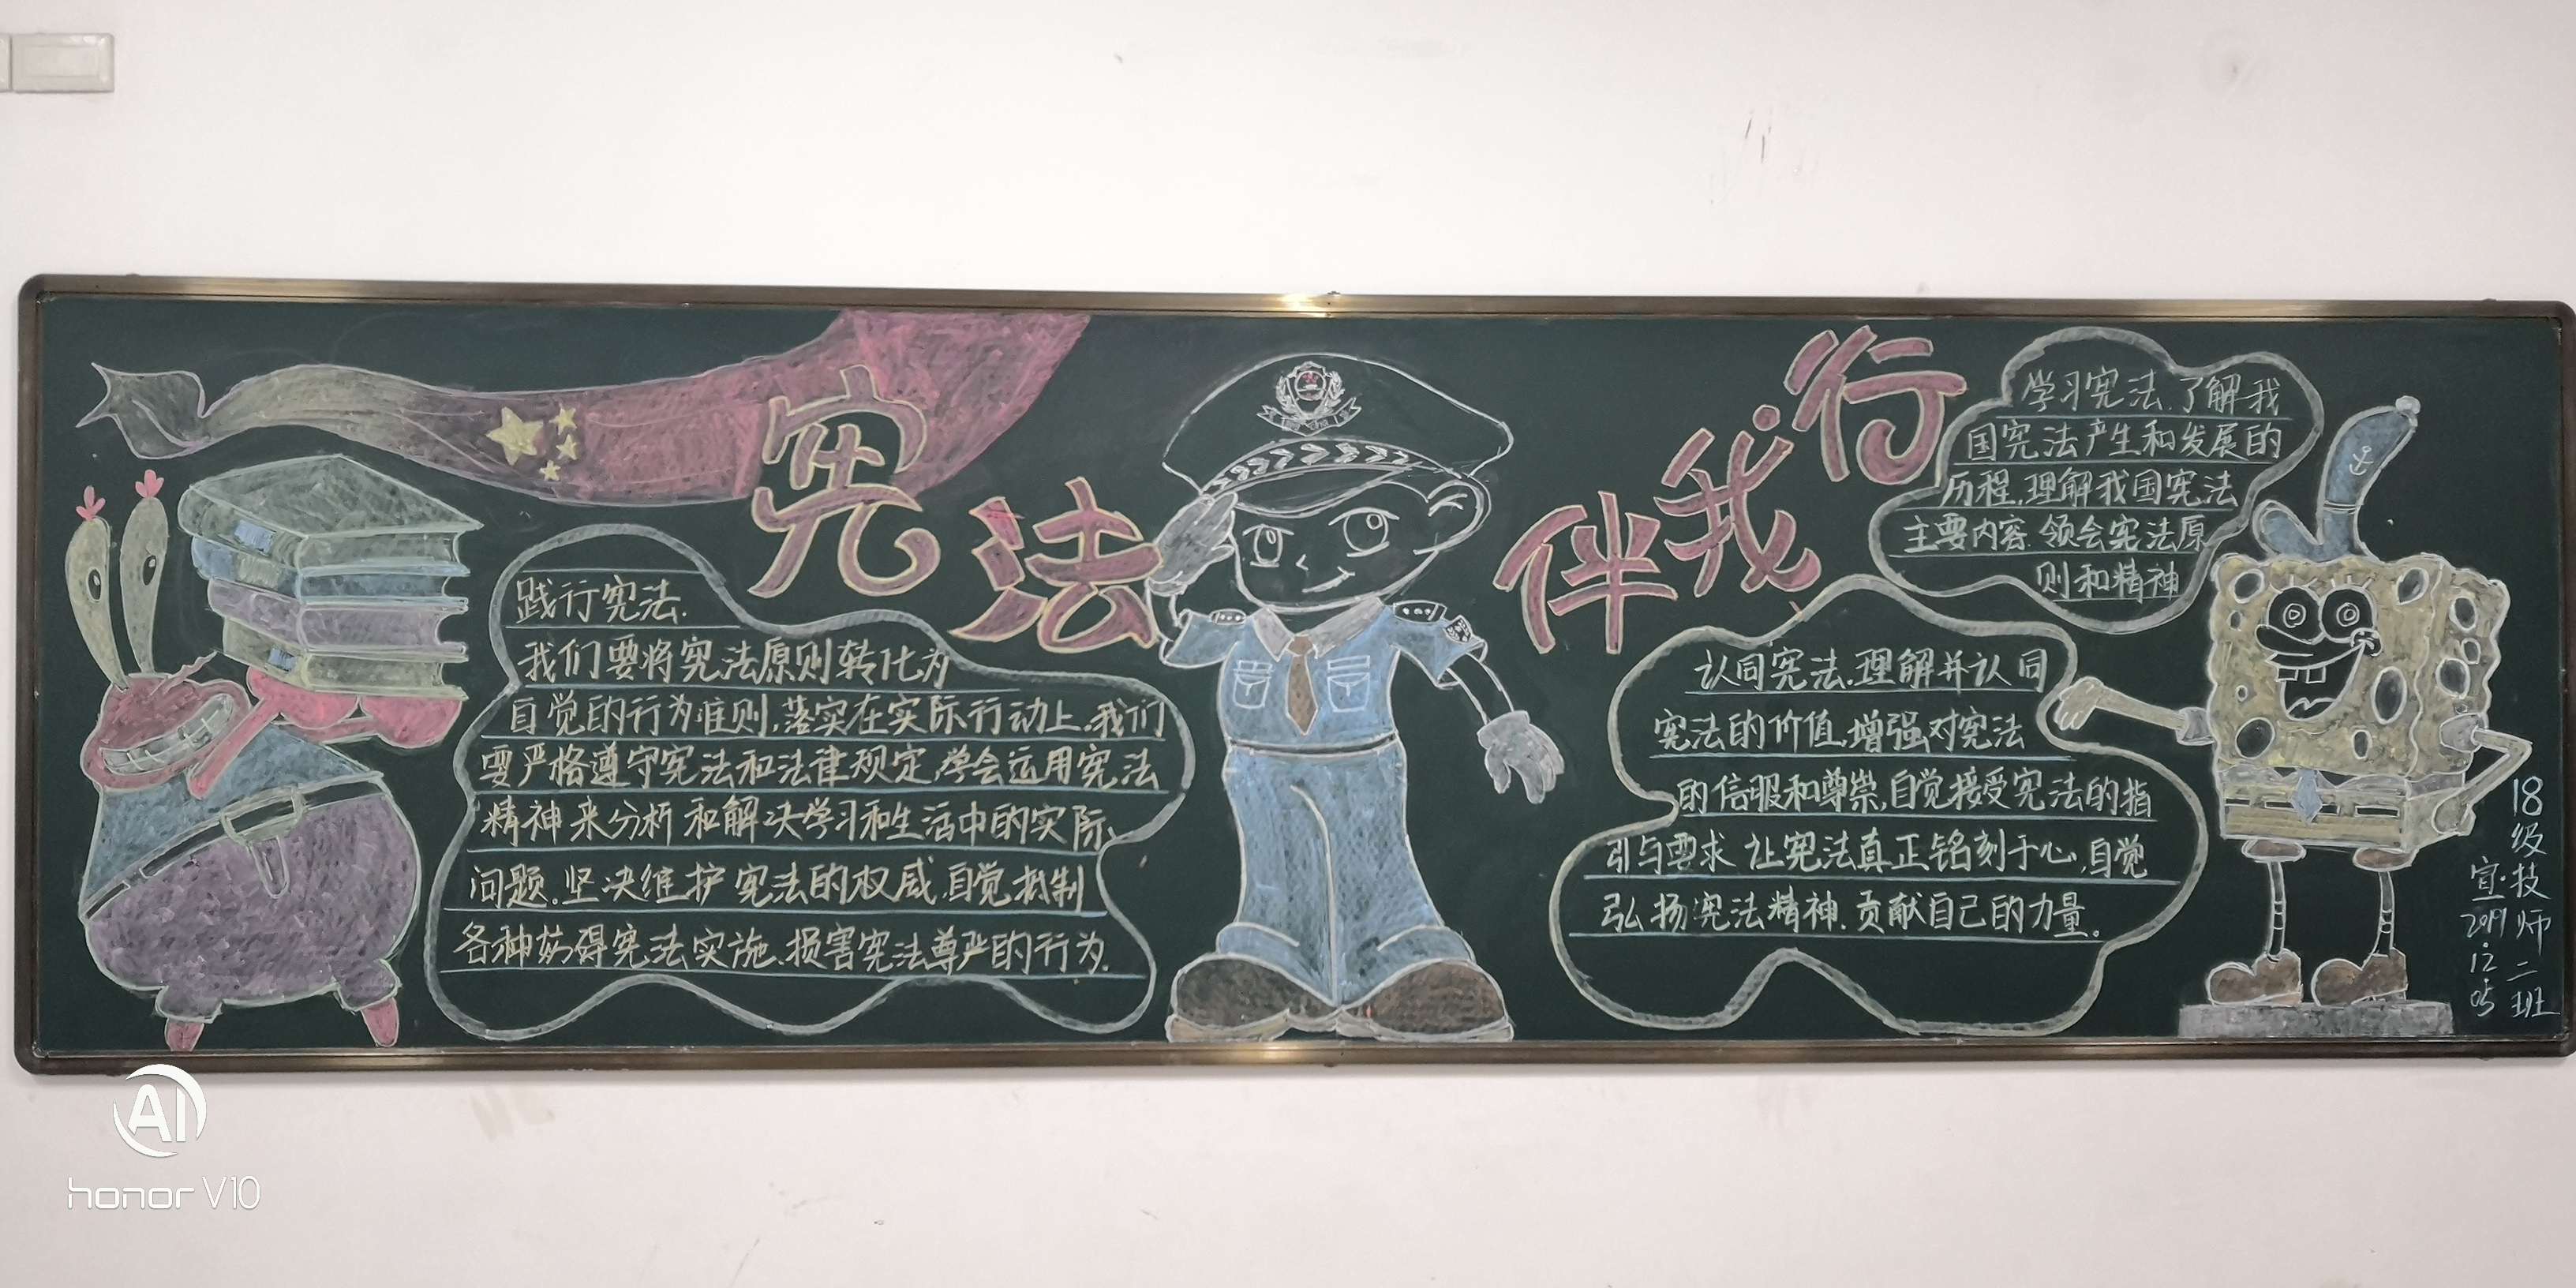 宪法伴我行
践行宪法.
我们要将宪法原则转化为
自觉的行为准则,落实在实际行动上.我们
要严格遵守宪法和法律规定,学会运用宪法
精神来分析和解决学习和生活中的实际、
问题.坚决维护宪法的权威.自觉抵制
各种妨碍宪法实施.损害宪法尊严的行为.
学习宪法.了解我
国宪法产生和发展的
历程.理解我国宪法
主要内容.领会宪法原
则和精神
认同宪法.理解并认同
宪法的价值.增强对宪法
的信服和尊崇,自觉接受宪法的指
引与要求 让宪法真正铭刻于心,自觉
弘扬宪法精神.贡献自己的力量.
18级技师二班
宣·2019.12.05
AI
honor V10